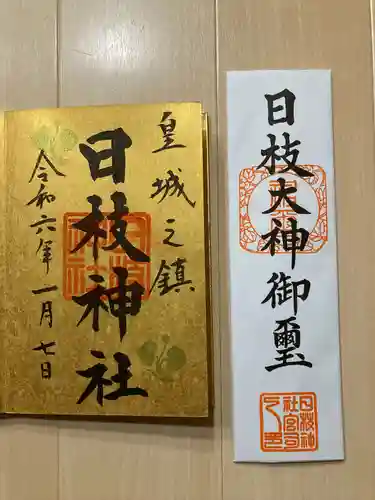 皇城之鎮
日枝神社
令和六年一月七日
日枝大神御璽
日枝神
社宮司
之印